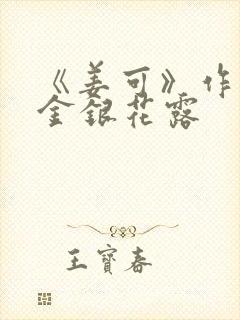 《姜可》作
金银花露
王寶春